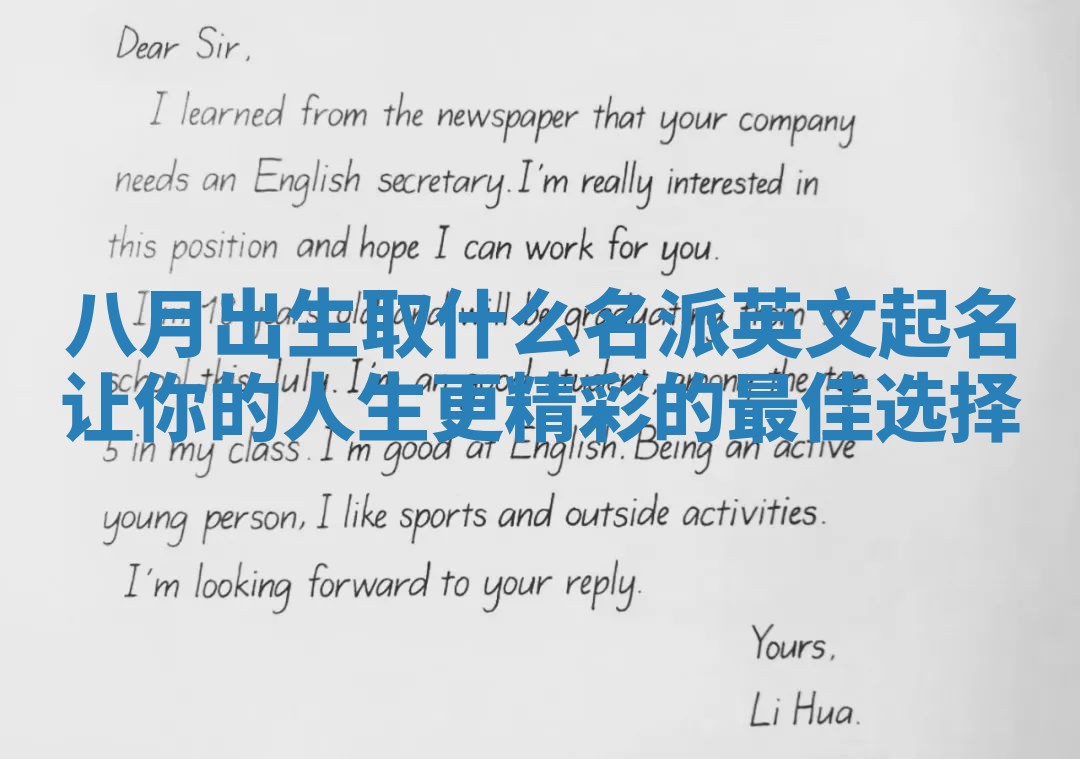 Dear Sir,
I learned from the newspaper that your company
needs an English secretary. I'm really interested in
this position and hope I can work for you.
八月出生取什么名派英文起名
school this July. I'm
让你的人生更精彩的最佳选择
5 in my class. I'm good at English. Being an active
young person, I like sports and outside activities.
I'm looking forward to your reply.
Yours,
Li Hua.